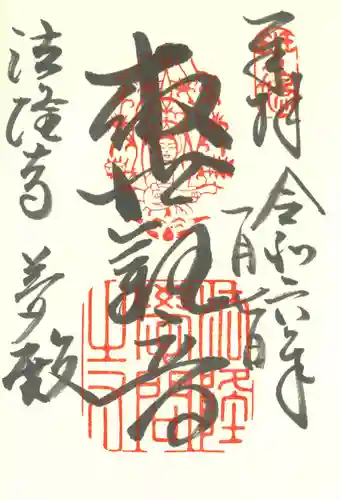 奉拝
令和六年
一月一日
救世観音
法隆寺
夢殿